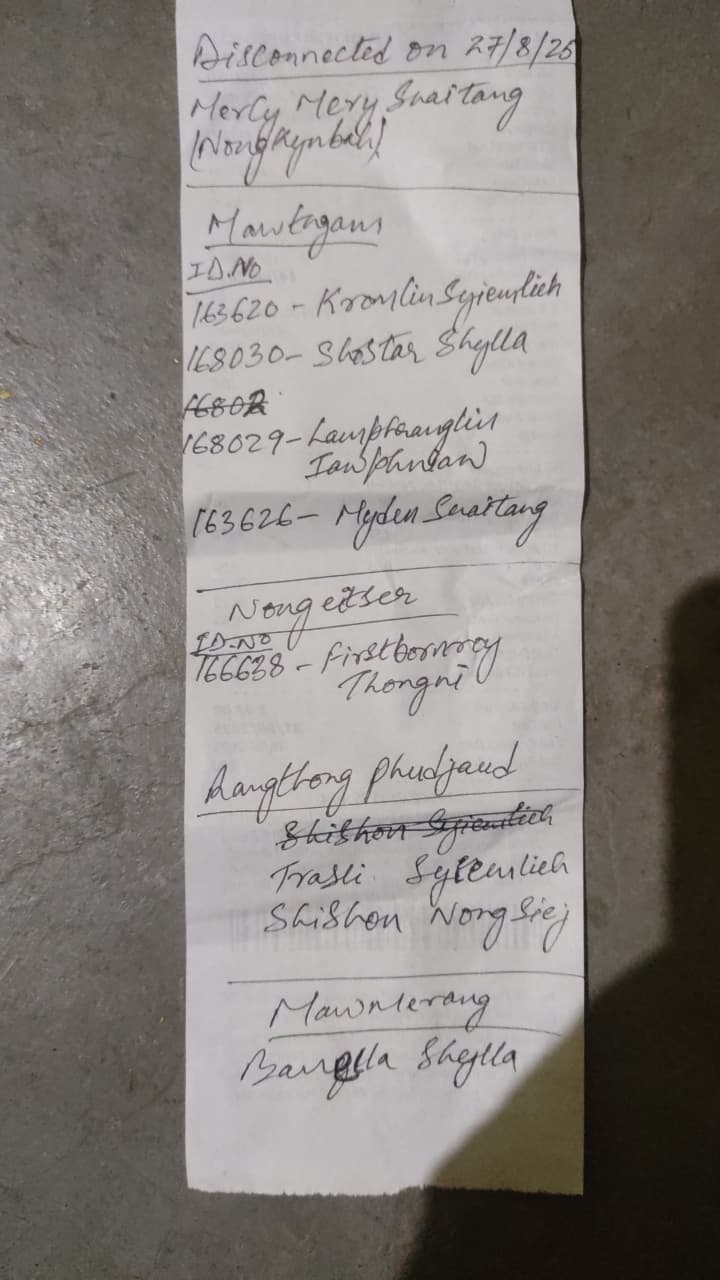 Disconnected on 27/8/25
Mercy Mery Suaitang
(Nongkynbah)
Mawtngam
ID.No
163620 - Kromlin Syiemlieh
168030 - Shostar Shylla
168029 - Lamphranglin
Iawphniaw
163626 - Myden Suaitang
Nongeitser
ID.NO
166638 - Firstbornroy
Thongni
Rangthong Phudjaud
Shishon Syiemlieh
Trasli Syiemlieh
Shishon NongSiej
Mawmerang
Shylla